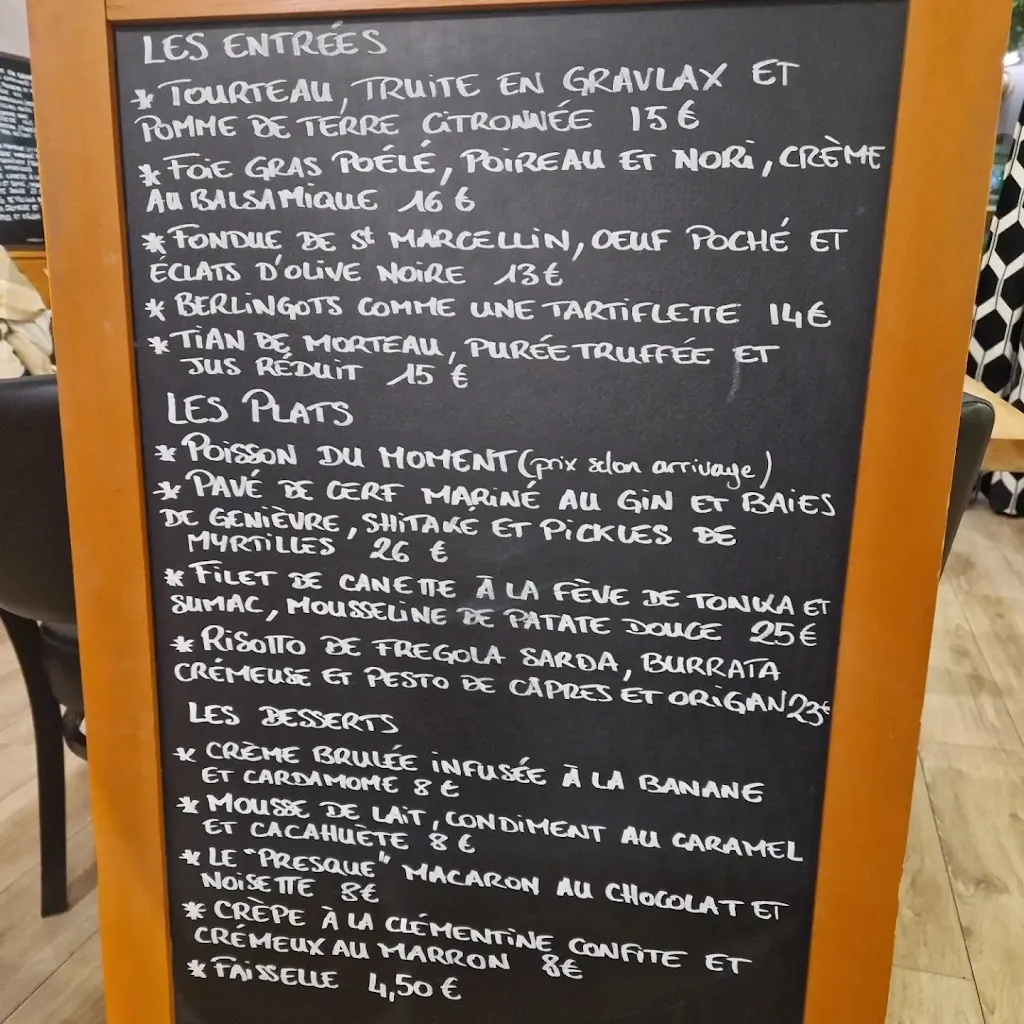 LES ENTRÉES
* TOURTEAU, TRUITE EN GRAVLAX ET
POMME DE TERRE CITRONNÉE 15 €
* FOIE GRAS POÉLÉ, POIREAU ET NORI, CRÈME
AU BALSAMIQUE 16 €
* FONDUE DE St MARCELLIN, OEUF POCHÉ ET
ÉCLATS D'OLIVE NOIRE 13€
* BERLINGOTS COMME UNE TARTIFLETTE 14€
* TIAN DE MORTEAU, PURÉE TRUFFÉE ET
JUS RÉDUIT 15 €
LES PLATS
* POISSON DU MOMENT (prix selon arrivage)
* PAVÉ DE CERF MARINÉ AU GIN ET BAIES
DE GENIÈVRE, SHITAKÉ ET PICKLES DE
MYRTILLES 26 €
* FILET DE CANETTE À LA FÈVE DE TONKA ET
SUMAC, MOUSSELINE DE PATATE DOUCE 25€
* RISOTTO DE FREGOLA SARDA, BURRATA
CRÉMEUSE ET PESTO DE CÂPRES ET ORIGAN 23€
LES DESSERTS
* CRÈME BRULÉE INFUSÉE À LA BANANE
ET CARDAMOME 8 €
* MOUSSE DE LAIT, CONDIMENT AU CARAMEL
ET CACAHUÈTE 8 €
* LE "PRESQUE" MACARON AU CHOCOLAT ET
NOISETTE 8€
* CRÈPE À LA CLÉMENTINE CONFITE ET
CRÉMEUX AU MARRON 8€
* FAISSELLE 4,50 €